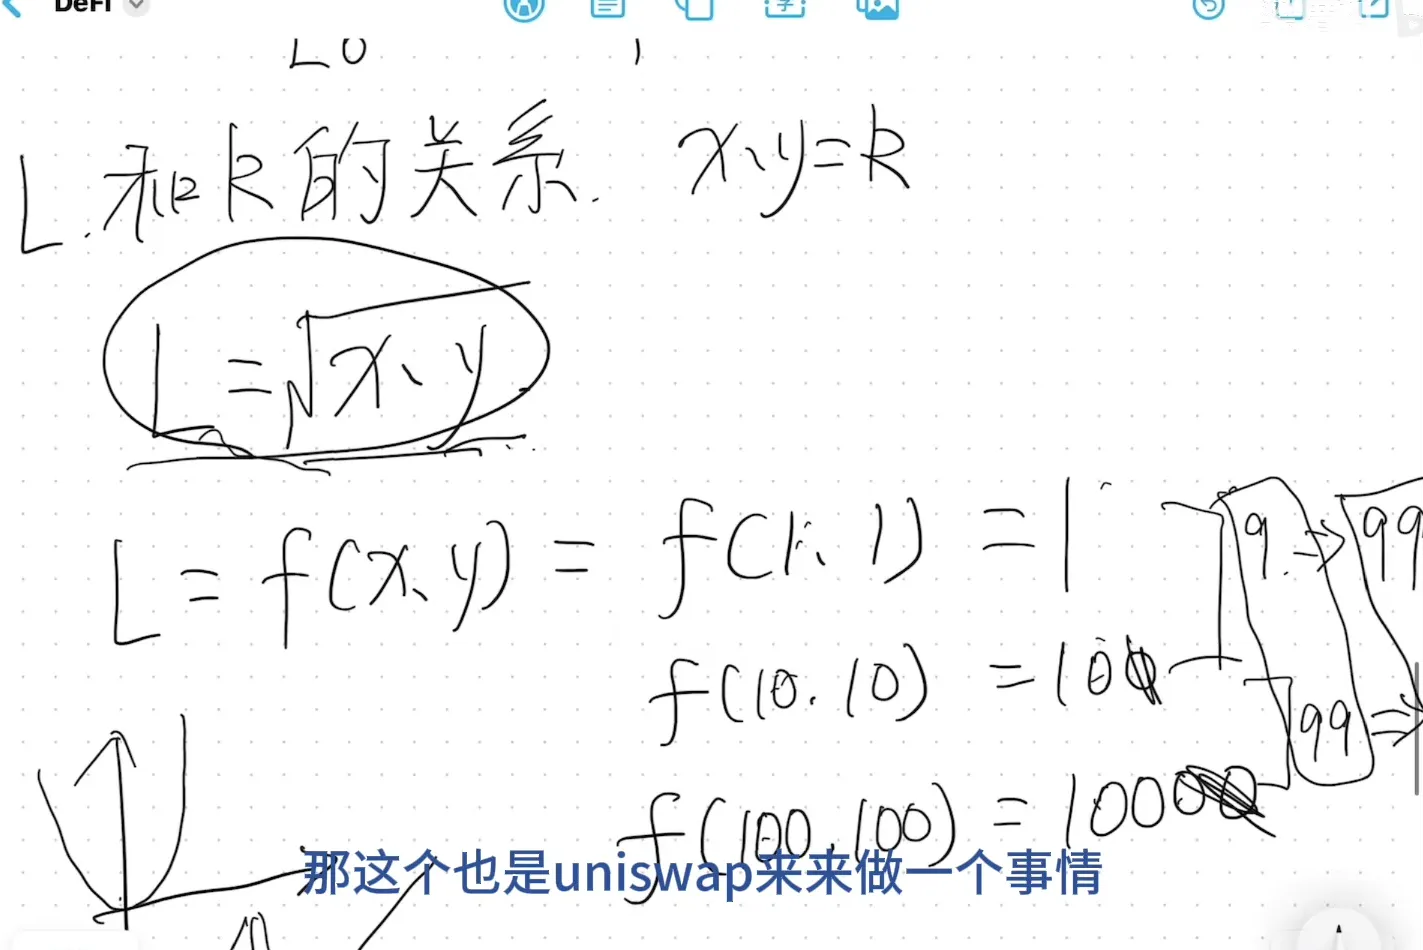 DeFi
L0
L 和 k 的关系. x、y=k
L=√x、y
L = f(x、y) = f(1、1) = 1
9 => 99
f(10.10) = 10
99 =>
f(100.100) = 100
那这个也是uniswap来来做一个事情